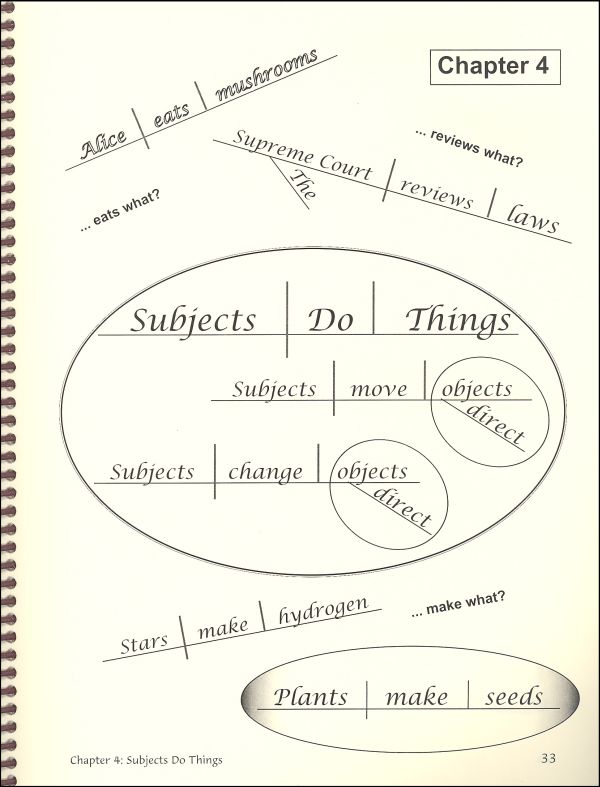 Chapter 4
Alice eats mushrooms
... eats what?
... reviews what?
Supreme Court reviews laws
The
Subjects Do Things
Subjects move objects
direct
Subjects change objects
direct
Stars make hydrogen
... make what?
Plants make seeds
Chapter 4: Subjects Do Things 33